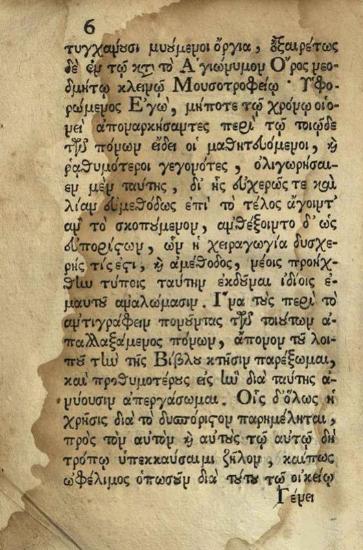 6
τυγχάνουσι μυόμενοι ὄργια, ἐξαιρέτως
δὲ ἐν τῷ κτ τὸ Ἁγιώνυμον Ὄρος νεο-
δμήτῳ κλεινῷ Μουσοτροφείῳ· Ὑφο-
ρώμενος Ἐγὼ, μήποτε τῷ χρόνῳ οἱο-
νεὶ ἀποναρκήσαντες περὶ τῷ τοιῷδε
τῶν πόνων εἴδει οἱ μαθητευόμενοι, ϗ
ῥαθυμότεροι γεγονότες, ὀλιγωρήσαι-
εν μὲν ταύτης, δι' ἧς εὐχερῶς τε καὶ
λίαν εὐμεθόδως ἐπὶ τὸ τέλος ἄγοιντ'
ἂν τὸ σκοπούμενον, ἀνθέξοιντο δ' ὡς
εὐπορίστων, ὧν ἡ χειραγωγία δυσχε-
ρής τίς ἐστι, ϗ ἀμέθοδος, νέοις προήχ-
θην τύποις ταύτην ἐκδοῦναι ἰδίοις ἐ-
μαυτοῦ ἀναλώμασιν. Ἵνα τοὺς περὶ τὸ
ἀντιγράφειν πονοῦντας τῶν τοιούτων ἀ-
παλλαξάμενος πόνων, ἄπονον τοῦ λοι-
ποῦ τὴν τῆς Βίβλου κτῆσιν παρέξωμαι,
καὶ προθυμοτέρους εἰς ἣν διὰ ταύτης ἀ-
νύουσιν ἀπεργάσωμαι. Οἷς δ' ὅλως ἡ
χρῆσις διὰ τὸ δυσπόριστον παρημέληται,
πρὸς τὸν αὐτὸν ϗ αὐτοὺς τῷ αὐτῷ δὴ
τρόπῳ ὑπεκκαύσαιμι ζῆλον, καίπως
ὠφέλιμος ὁπωσοῦν διὰ τούτου τῷ οἰκείῳ
Γένει